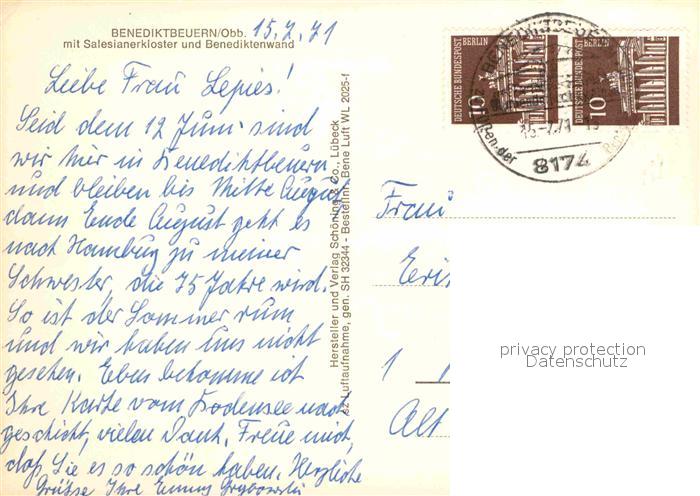 BENEDIKTBEUERN/Obb.
mit Salesianerkloster und Benediktenwand
15.7.71
Liebe Frau Lepies!
Seid dem 12 Juni sind
wir hier in Benediktbeuern
und bleiben bis Mitte August
dann Ende August geht es
nach Hamburg zu meiner
Schwester, die 75 Jahre wird.
So ist der Sommer rum
und wir haben uns nicht
gesehen. Eben bekomme ich
Ihre Karte vom Bodensee nach
geschickt, vielen Dank. Freue mich,
daß Sie es so schön haben. Herzliche
Grüsse Ihre Emmy
Hersteller und Verlag Schöning & Co., Lübeck
sz Luftaufnahme, gen. SH 32344 - Bestellnr. Bene Luft WL 2025-f
DEUTSCHE BUNDESPOST
BERLIN
10
DEUTSCHE BUNDESPOST
BERLIN
10
8174
Frau
Eri
1
Alt
privacy protection
Datenschutz